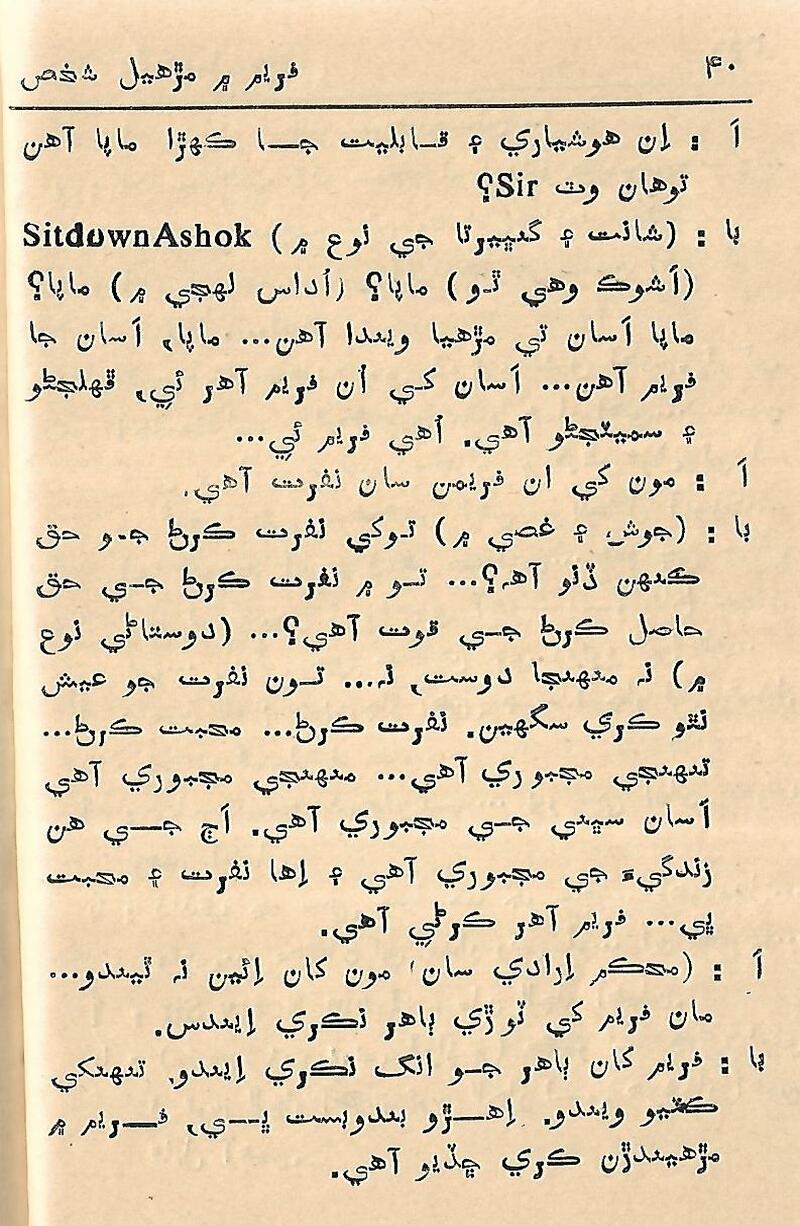 ۴۰
فريم ۾ مڙهيل شخص
اَ : اِن هوشياري ۽ قابليت جا ڪهڙا ماپا آهن
توهان وٽ Sir؟
با : (شانت ۽ گنڀيرتا جي نوع ۾) SitdownAshok
(اَشوڪ وهي ٿو) ماپا؟ (اُداس لهجي ۾) ماپا؟
ماپا اَسان تي مڙهيا ويندا آهن... ماپا، اَسان جا
فريم آهن... اَسان کي اُن فريم آهر ئي، ڦهلجڻو
۽ سميٽجڻو آهي. اُهي فريم ئي...
اَ : مون کي ان فريمن سان نفرت آهي.
با : (جوش ۽ غصي ۾) توکي نفرت ڪرڻ جو حق
ڪنهن ڏنو آهه؟... تو ۾ نفرت ڪرڻ جي حق
حاصل ڪرڻ جي قوت آهي؟... (دوستاڻي نوع
۾) نہ منهنجا دوست، نہ... تون نفرت جو عيش
نٿو ڪري سگهين. نفرت ڪرڻ... محبت ڪرڻ...
تنهنجي مجبوري آهي... منهنجي مجبوري آهي
اَسان سڀني جي مجبوري آهي. اَڄ جي هن
زندگيءَ جي مجبوري آهي ۽ اِها نفرت ۽ محبت
ڀي... فريم آهر ڪرڻي آهي.
اَ : (محڪم اِرادي سان' مون کان اِئين نہ ٿيندو...
مان فريم کي ٽوڙي ٻاهر نڪري ايندس.
با : فريم کان ٻاهر جو انگ نڪري ايندو. تنهنکي
ڪٽيو ويندو. اِهڙو بندوبست ڀي، فريم ۾
مڙهيندڙن ڪري ڇڏيو آهي.